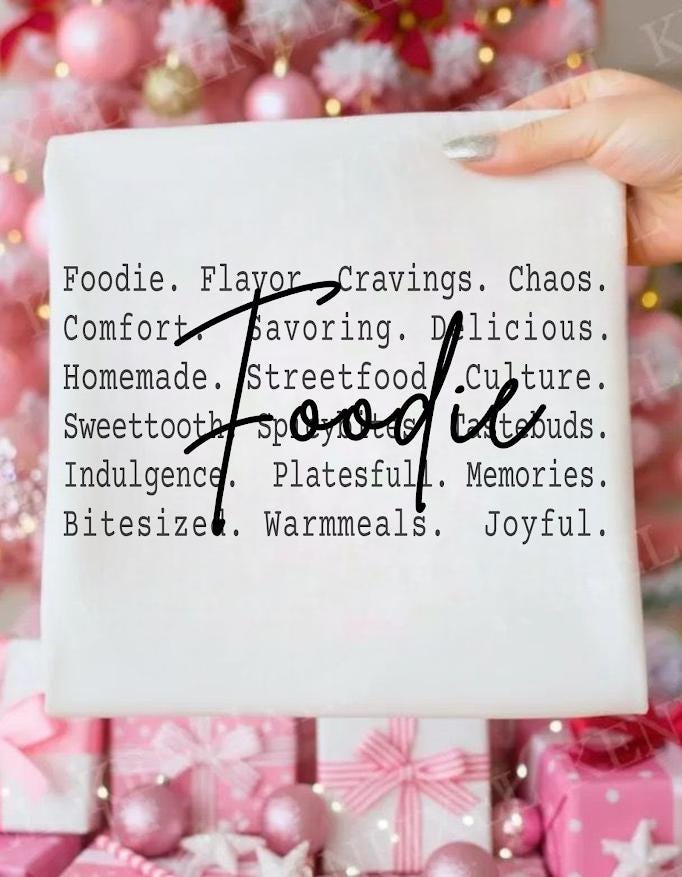 Foodie. Flavor. Cravings. Chaos.
Comfort. Savoring. Delicious.
Homemade. Streetfood. Culture.
Sweettooth. Spicybites. Tastebuds.
Indulgence. Platesfull. Memories.
Bitesized. Warmmeals. Joyful.
Foodie